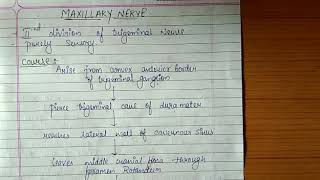 MAXILLARY NERVE
IInd division of trigeminal nerve
- Purely Sensory.
Course:
Arise from convex anterior border
of trigeminal ganglion
Pierce trigeminal cave of dura mater
reaches lateral wall of cavernous sinus
leaves middle cranial fossa through
foramen Rotundum